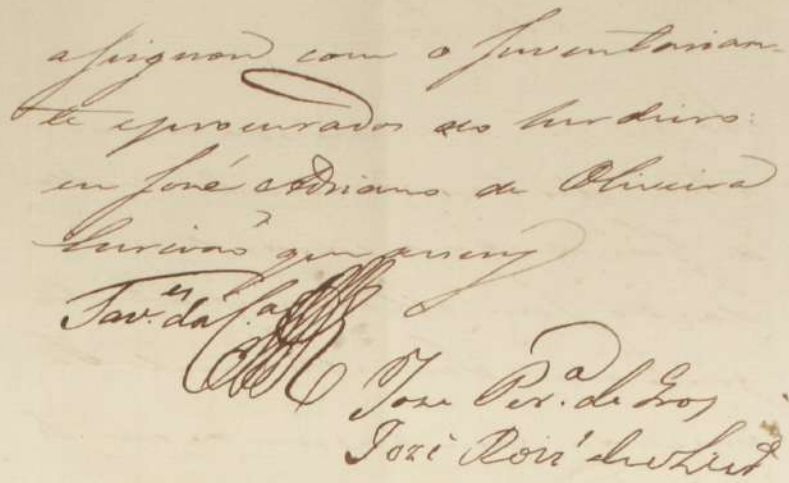 assignou com o Inventarian-
te e procurador do herdeiro.
eu José Adriano de Oliveira
Escrivaõ que escrevy
Tav.es da C.a
Jose Per.a de
José Roiz' da